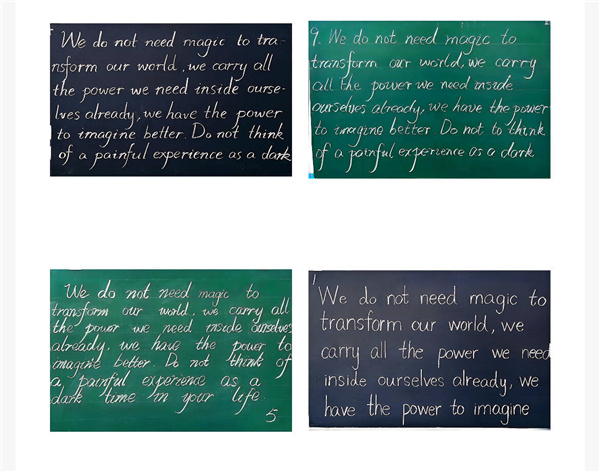 We do not need magic to tra-
nsform our world, we carry all
the power we need inside ourse-
lves already, we have the power
to imagine better. Do not think
of a painful experience as a dark
9. We do not need magic to
transform our world, we carry
all the power we need inside
ourselves already, we have the power
to imagine better Do not to think
of a painful experience as a dark
We do not need magic to
transform our world, we carry all
the power we need inside ourselves
already, we have the power to
imagine better. Do not think of
a painful experience as a
dark time in your life.
5
1
We do not need magic to
transform our world, we
carry all the power we need
inside ourselves already, we
have the power to imagine